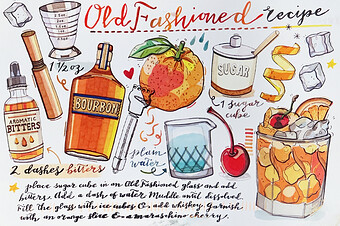 Old Fashioned recipe
1 1/2 oz
AROMATIC
BITTERS
BOURBON
SUGAR
1 sugar
cube
2 dashes bitters
plain
water
place sugar cube in an Old Fashioned glass and add
bitters. Add a dash of water. Muddle until dissolved.
Fill the glass with ice cubes & add whiskey. Garnish
with an orange slice & a maraschino cherry.